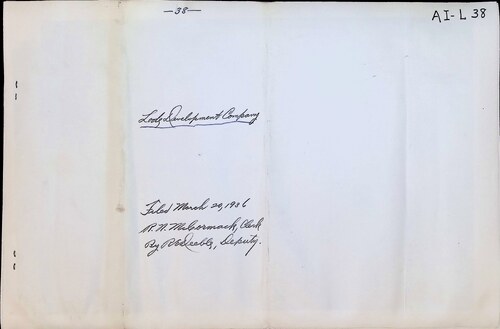 —38—
AI-L 38
Development Company
Filed March 20, 1936
R.N. McCormack, Clerk
By Deputy.